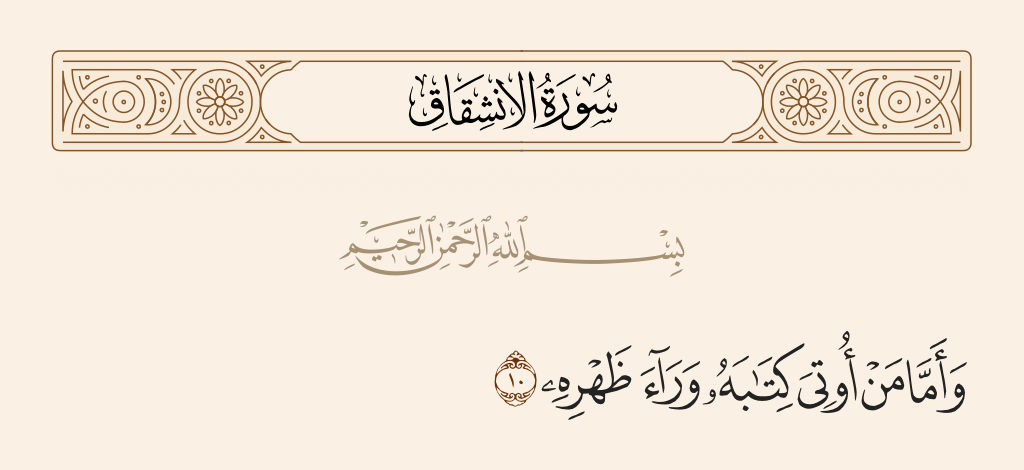 سُورَةُ الانشِقَاقِ
بِسْمِ ٱللَّهِ ٱلرَّحْمَٰنِ ٱلرَّحِيمِ
وَأَمَّا مَنْ أُوتِىَ كِتَٰبَهُۥ وَرَآءَ ظَهْرِهِۦ ١٠